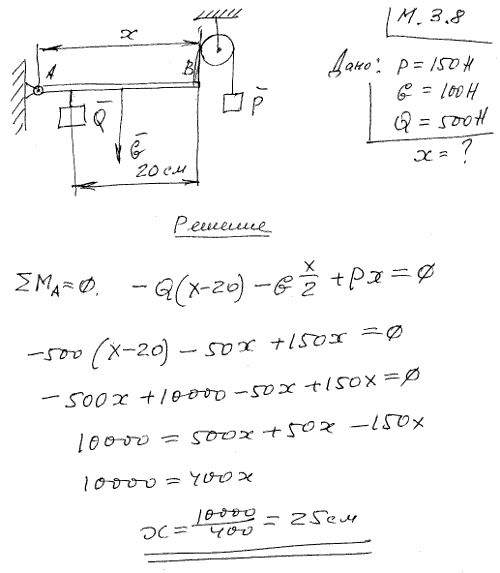 М. 3.8
Дано: P = 150Н
G = 100Н
Q = 500Н
x = ?
x
A
B
Q̅
G̅
P̅
20 см
Решение
ΣM_A = 0. -Q(x-20) - G x/2 + Px = 0
-500 (x-20) - 50x + 150x = 0
-500x + 10000 - 50x + 150x = 0
10000 = 500x + 50x - 150x
10000 = 400x
x = 10000/400 = 25 см